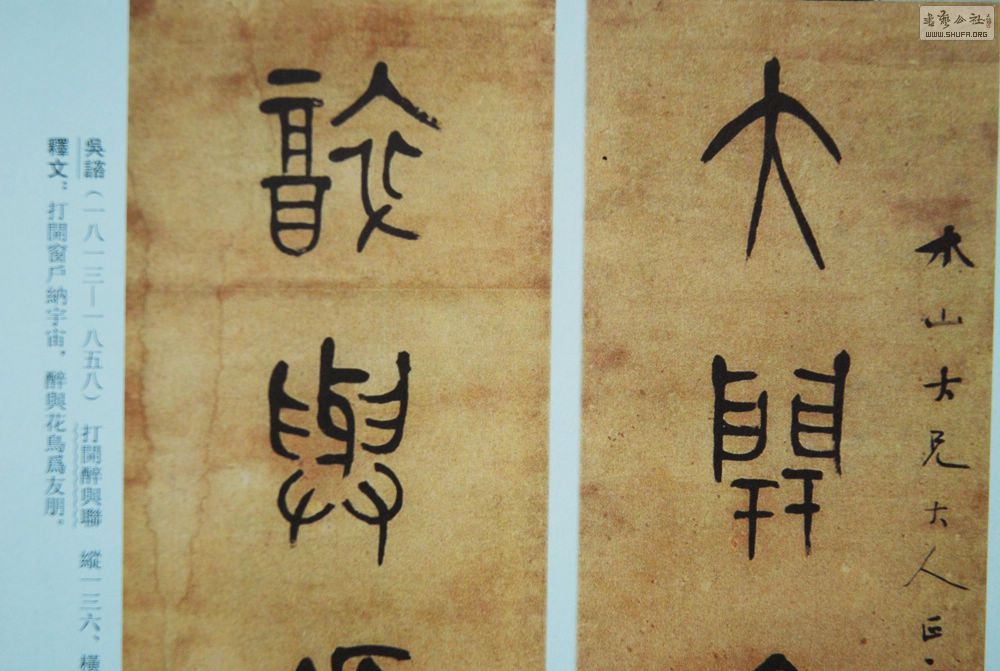 木山大兄大人
大開
醉與
吳諮（一八一三—一八五八） 打開醉與聯 縱一三六、橫
釋文：打開窗戶納宇宙，醉與花鳥爲友朋。
書藝公社
WWW.SHUFA.ORG